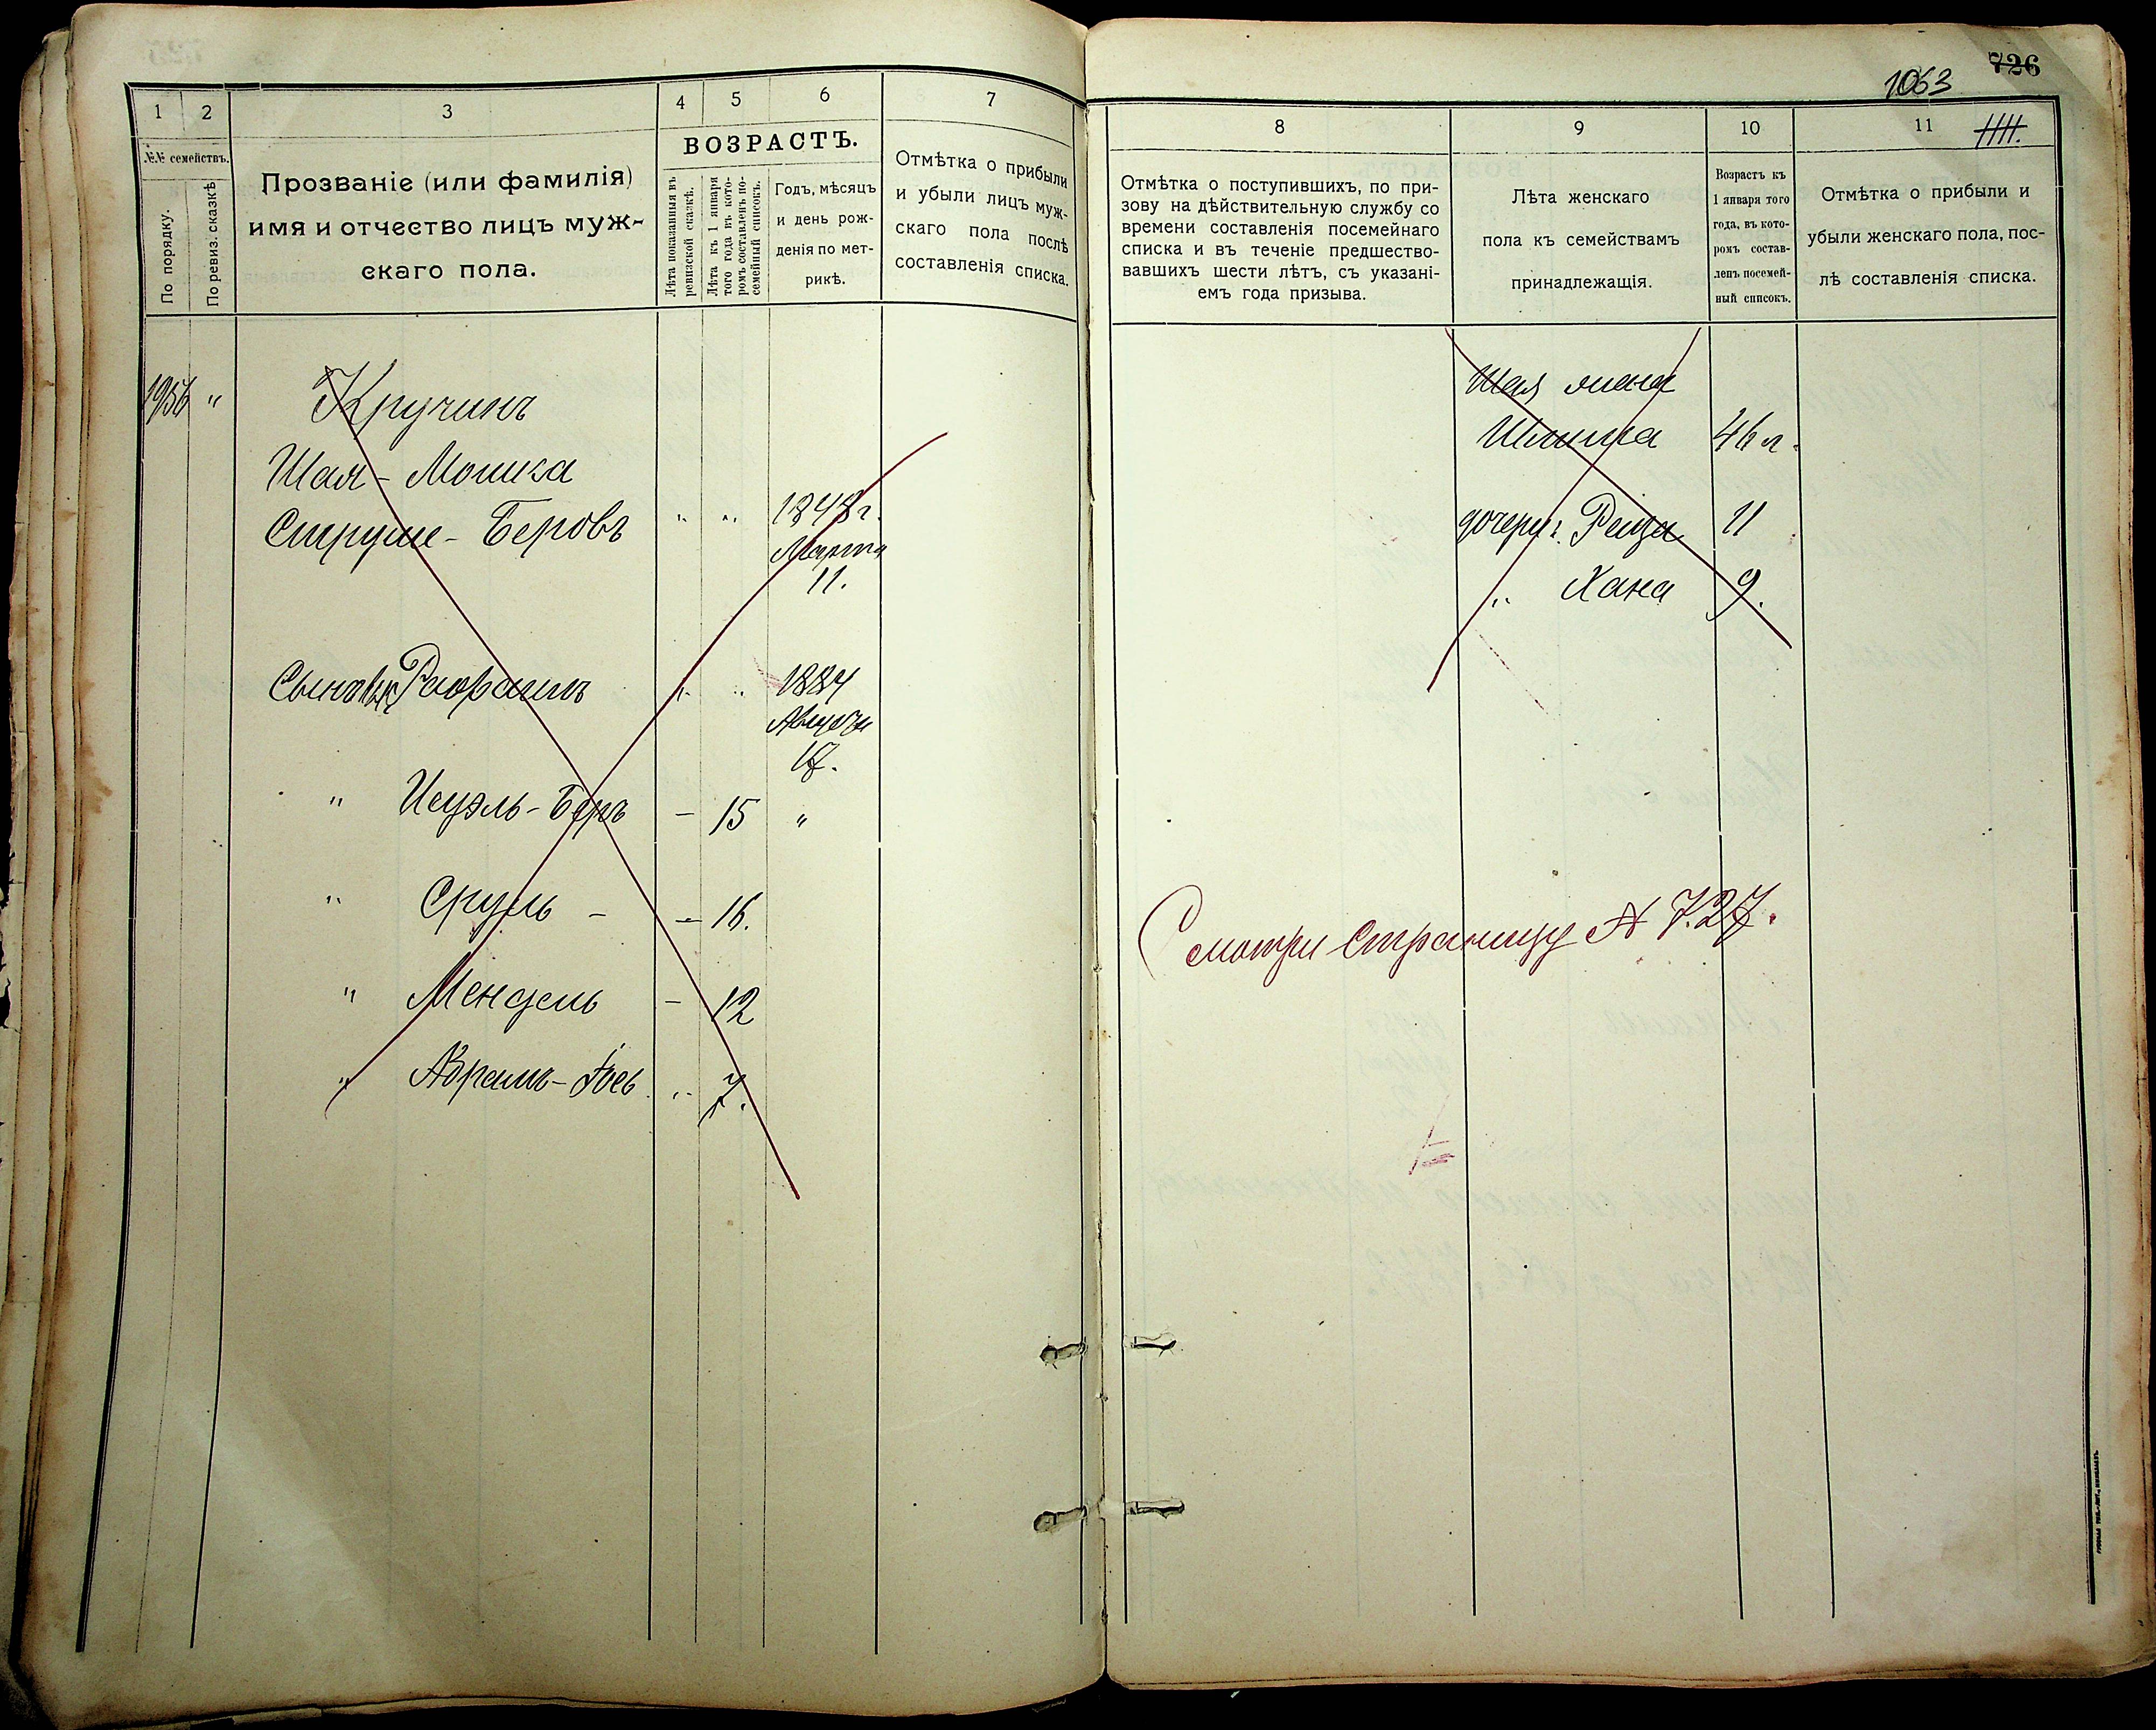 1 2 3 4 5 6 7
№№ семействъ.
По порядку.
По ревиз. сказкѣ
Прозваніе (или фамилія)
имя и отчество лицъ муж-
скаго пола.
ВОЗРАСТЪ.
Лѣта показанныя въ
ревизской сказкѣ.
Лѣта къ 1 января
того года въ кото-
ромъ составленъ по-
семейный списокъ.
Годъ, мѣсяцъ
и день рож-
денія по мет-
рикѣ.
Отмѣтка о прибыли
и убыли лицъ муж-
скаго пола послѣ
составленія списка.
1956 "
Кручинъ
Шая - Мошка
Беровъ " " 1848 г.
Марта
11.
Сыновья 1884
Августа
17.
" Беръ - 15 "
" Сруль - - 16.
" Мендель - 12
" Абрамъ - " 7.
726
1063
8 9 10 11
Отмѣтка о поступившихъ, по при-
зову на дѣйствительную службу со
времени составленія посемейнаго
списка и въ теченіе предшество-
вавшихъ шести лѣтъ, съ указані-
емъ года призыва.
Лѣта женскаго
пола къ семействамъ
принадлежащія.
Возрастъ къ
1 января того
года, въ кото-
ромъ состав-
ленъ посемей-
ный списокъ.
Отмѣтка о прибыли и
убыли женскаго пола, пос-
лѣ составленія списка.
Шая жена
46 л.
дочери: 11
" Хана 9.
Смотри страницу № 727.